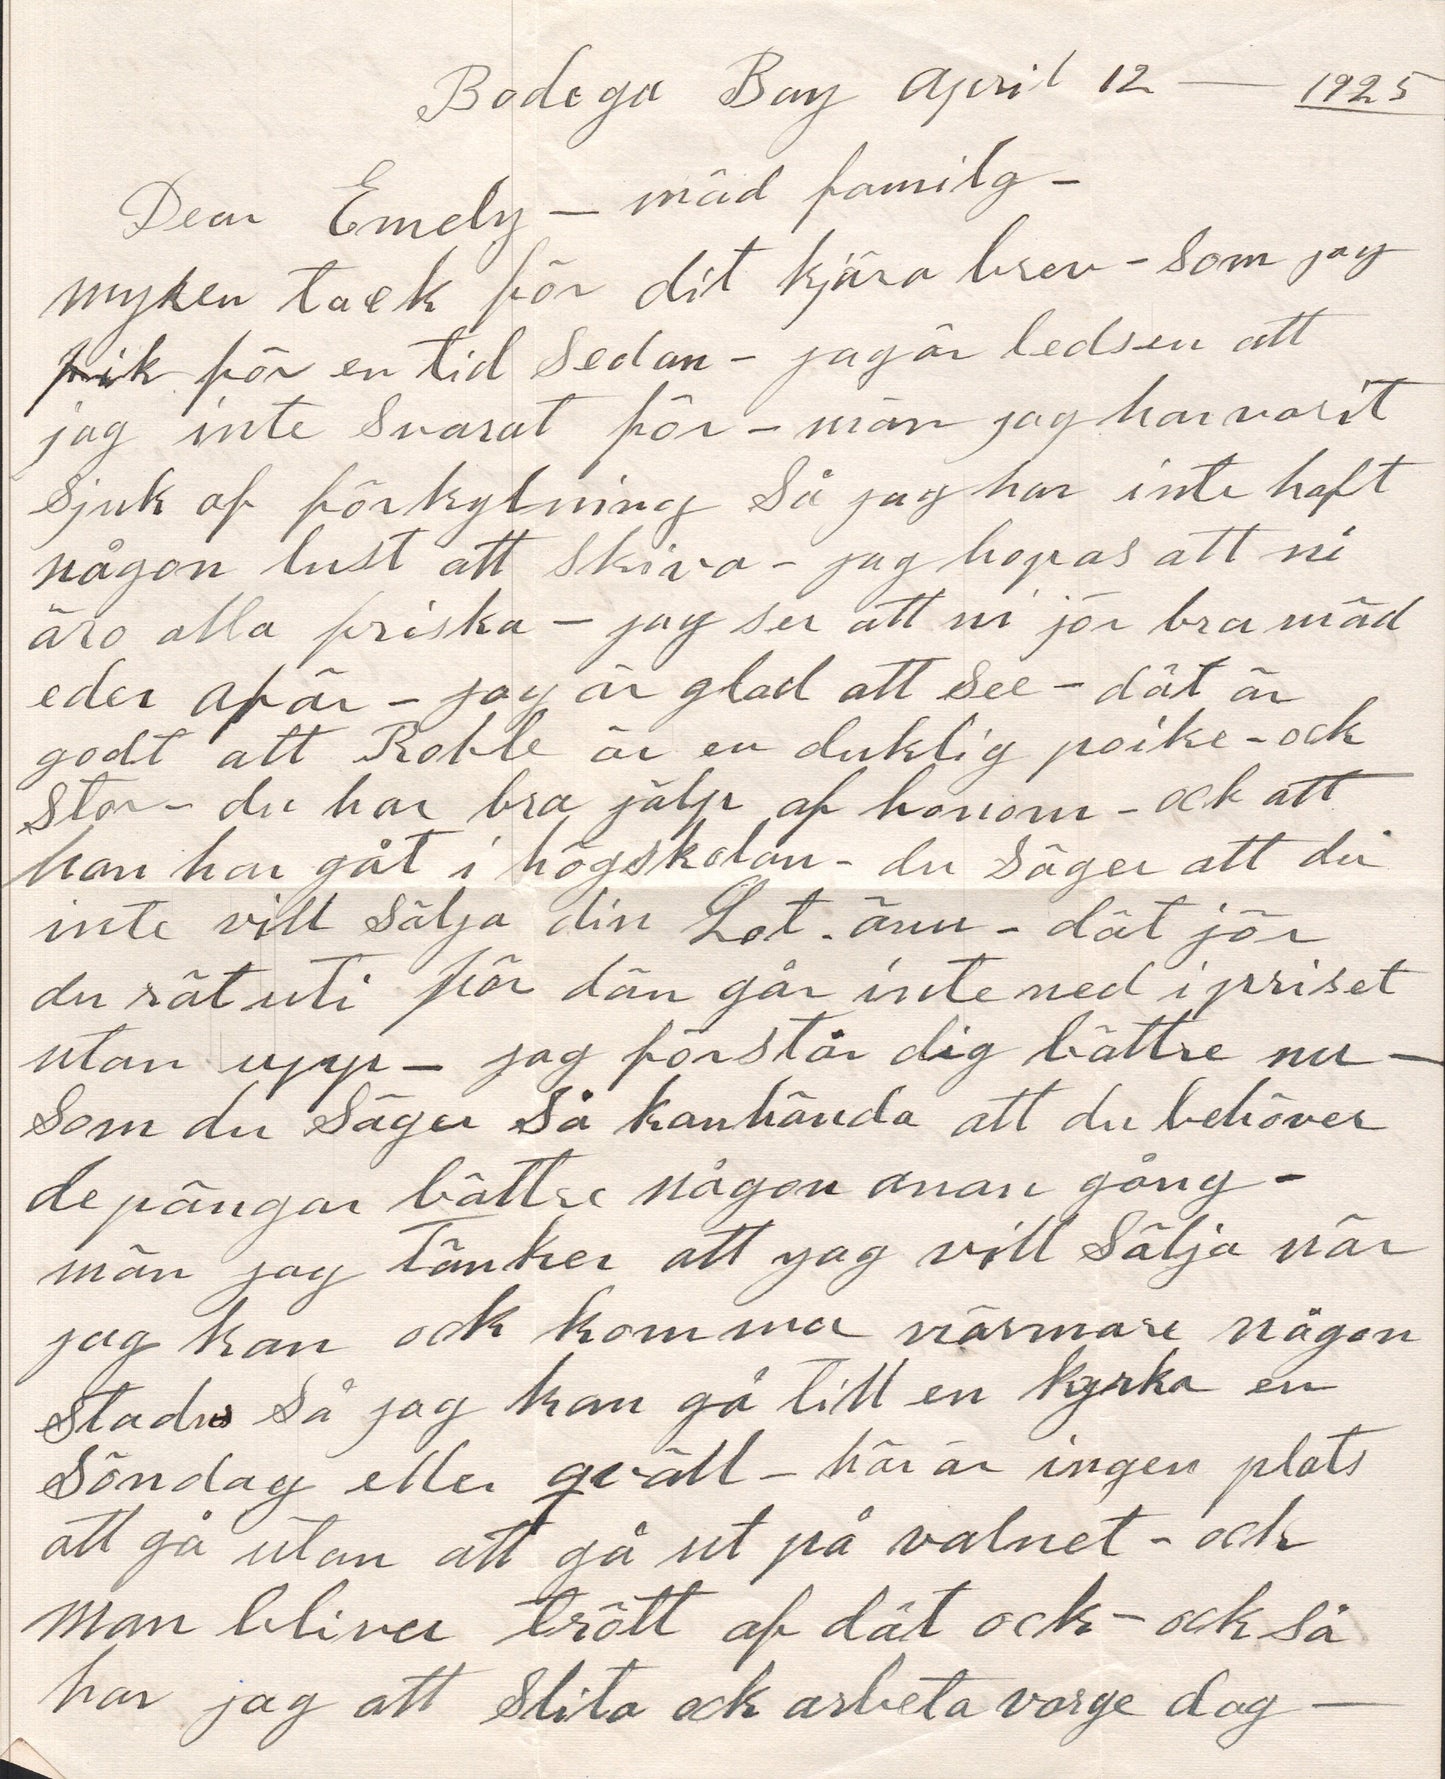 Bodega Bay April 12 — 1925
Dear Emely — mäd familg -
myken tack för dit kjära brev - Som jag
fik för en tid Sedan - jag är ledsen att
jag inte Svarat för - män jag har varit
Sjuk af förkylning Så jag har inte haft
någon lust att skiva - jag hopas att ni
äro alla friska - jag ser att ni jör bra mäd
eder afär - jag är glad att See - dät är
godt att är en duklig poike - ock
Stor - du har bra jälp af honom - ock att
han har gåt i högskolan - du Säger att du
inte vill Sälja din Lot - änn - dät jör
du rät uti för dän går inte ned i priset
utan upp - jag förstår dig bättre nu —
Som du Säger Så kanhända att du behöver
de pängar bättre någon anan gång -
män jag Tänker att jag vill Sälja när
jag kan ock komma närmare någon
Stads Så jag kan gå till en kyrka en
Söndag eller qväll - här är ingen plats
att gå utan att gå ut på valnet - och
man bliver trött af dät ock - ock så
har jag att Slita ock arbeta varge dag —